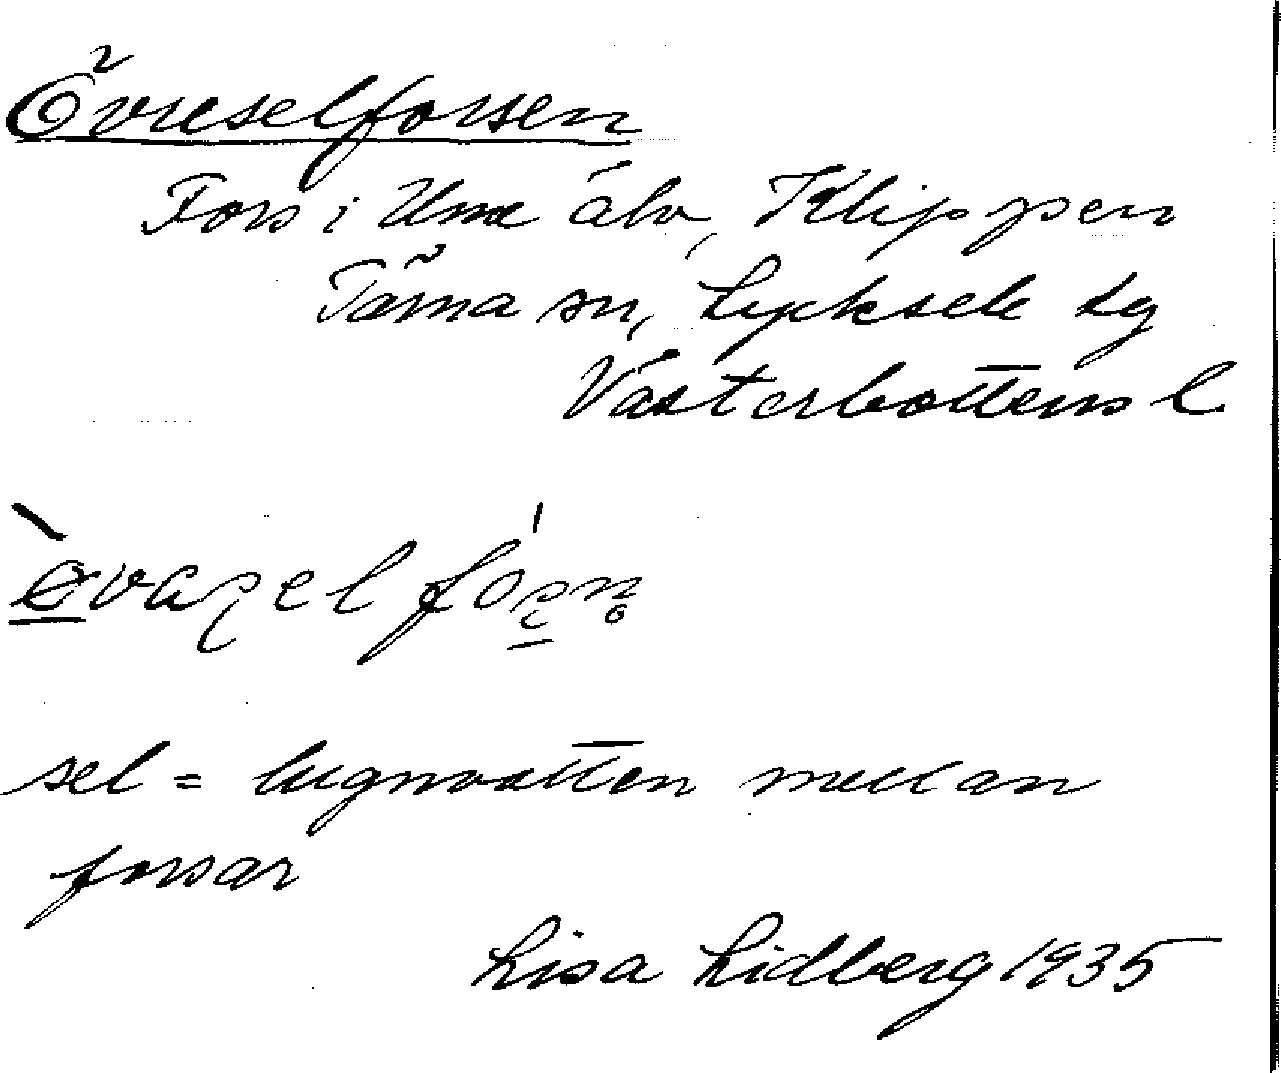 Övreselforsen
Fors i Ume älv, Klippen
Tärna sn, Lycksele lg
Västerbottens l
sel = lugnvatten mellan
forsar
Lisa Lidberg 1935